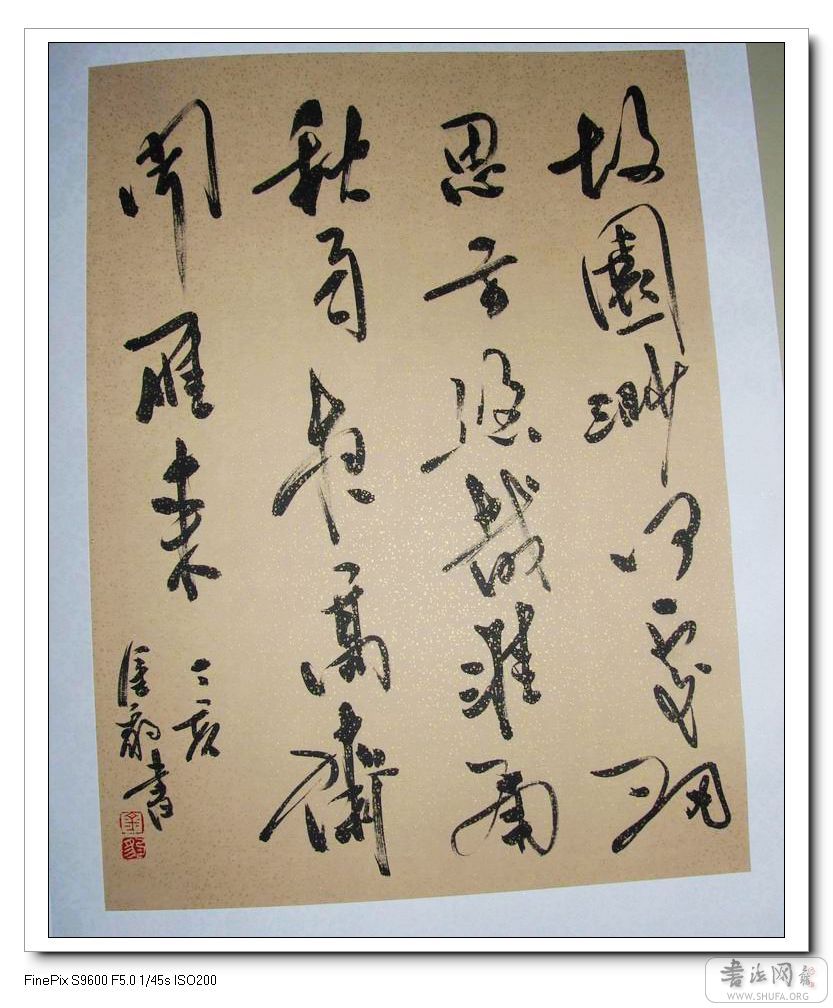 故園渺何處歸
思方悠哉淮南
秋雨夜高齋
聞雁來
丁亥
書
FinePix S9600 F5.0 1/45s ISO200
書法网
WWW.SHUFA.ORG